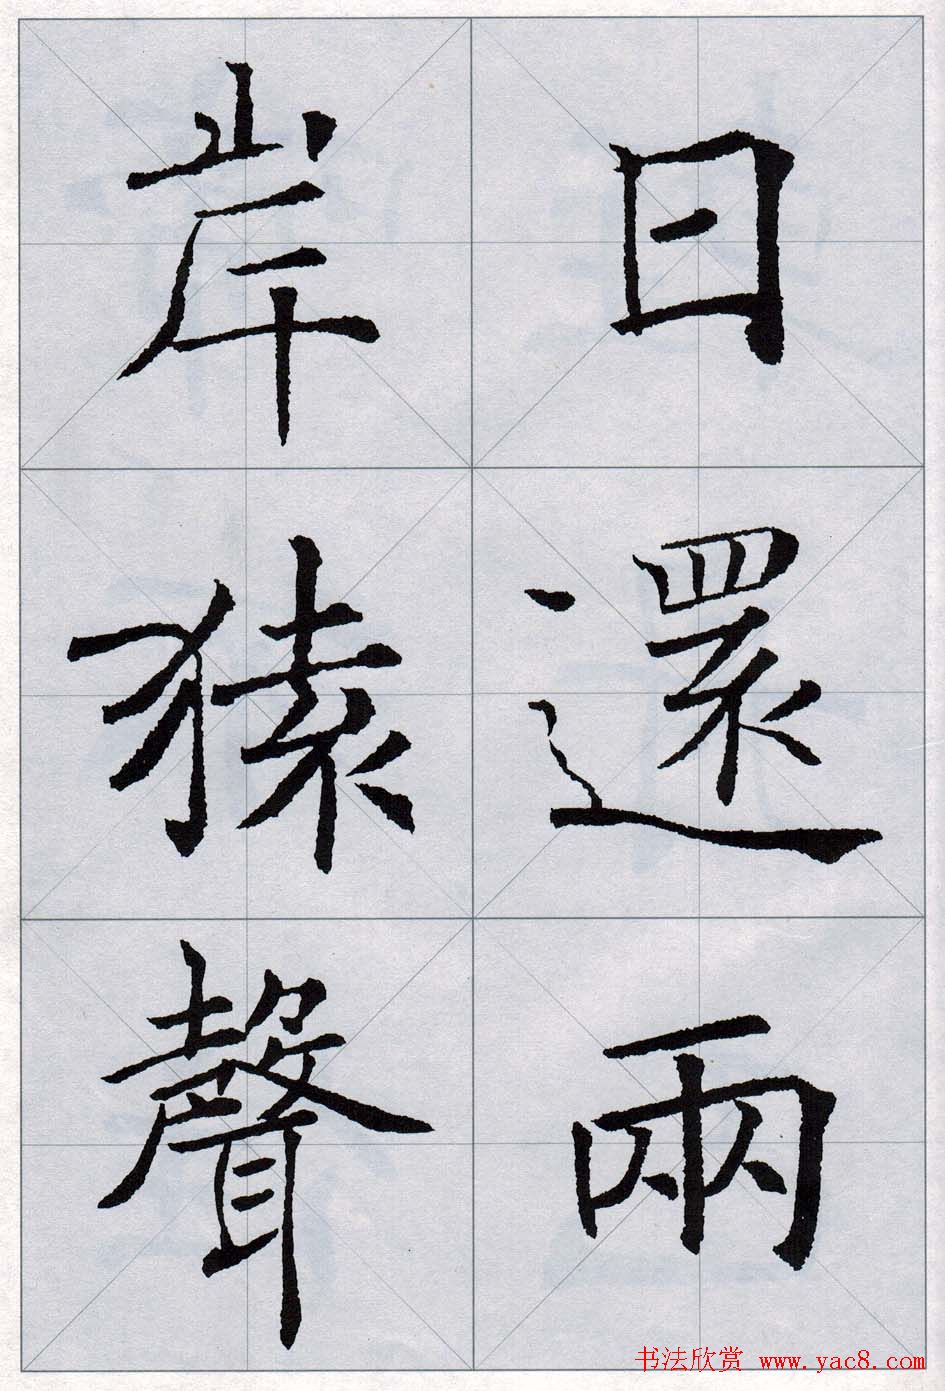 日還兩
岸猿聲
书法欣赏 www.yac8.com